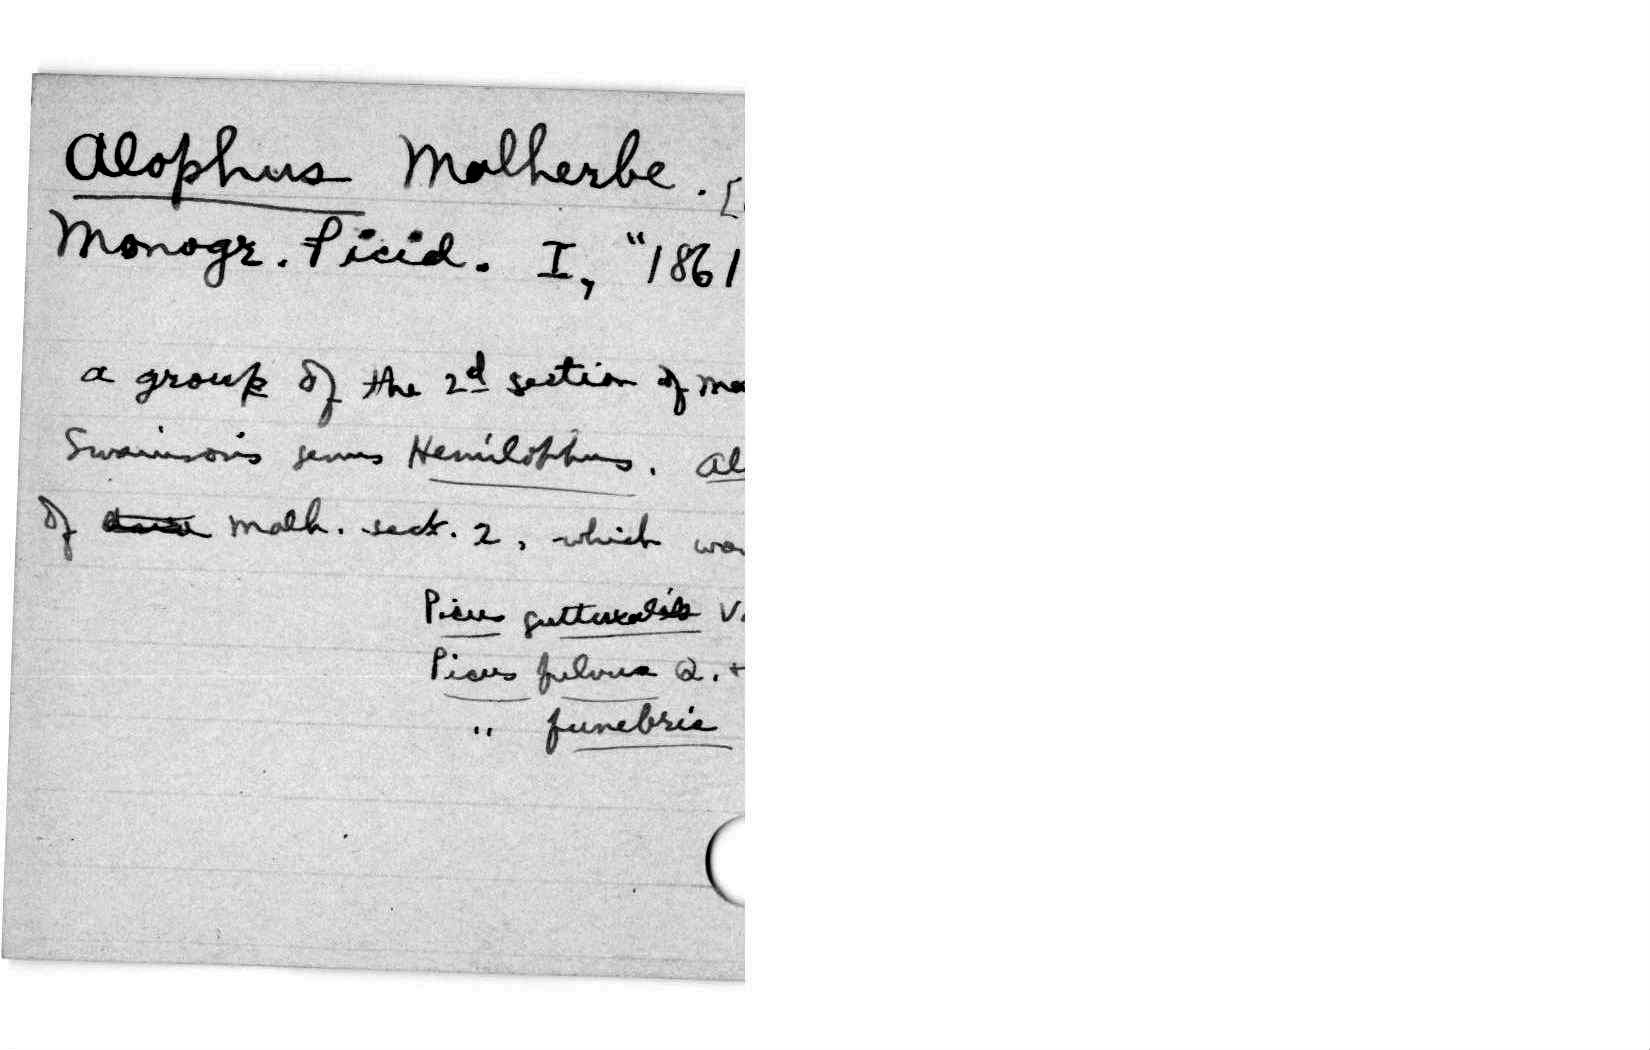 Alophus Malherbe. [
Monogr. Picid. I, "1861
a group of the 2d section of
Swainson's genus Hemilophus. Al
of Malh. sect. 2, which
Picus gutturalis V
Picus fulvus Q. +
" funebris